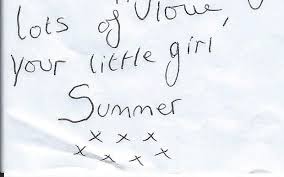 lots of
your little girl,
Summer
x x x
x x x x